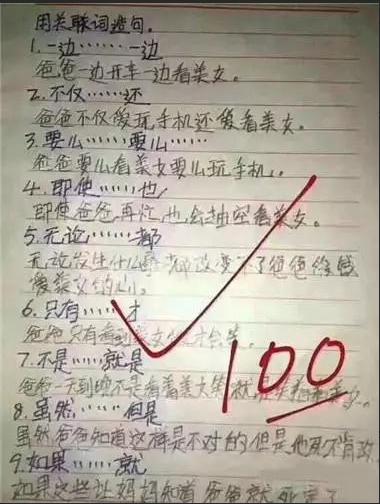 用关联词造句。
1.一边……一边
爸爸一边开车一边看美女。
2.不仅……还
爸爸不仅爱玩手机还爱看美女。
3.要么……要么……
爸爸要么看美女要么玩手机。
4.即使……也
即使爸爸再忙也会抽空看美女。
5.无论……都
无论发生什么 都改变不了爸爸
爱美女的心。
6.只有……才
爸爸只有看到美女 才会笑。
7.不是……就是
爸爸一天到晚不是看着美女笑就是 美女。
8.虽然……但是
虽然爸爸知道这样是不对的但是他死不肯改
9.如果……就
如果这些让妈妈知道 爸爸就死定了
100